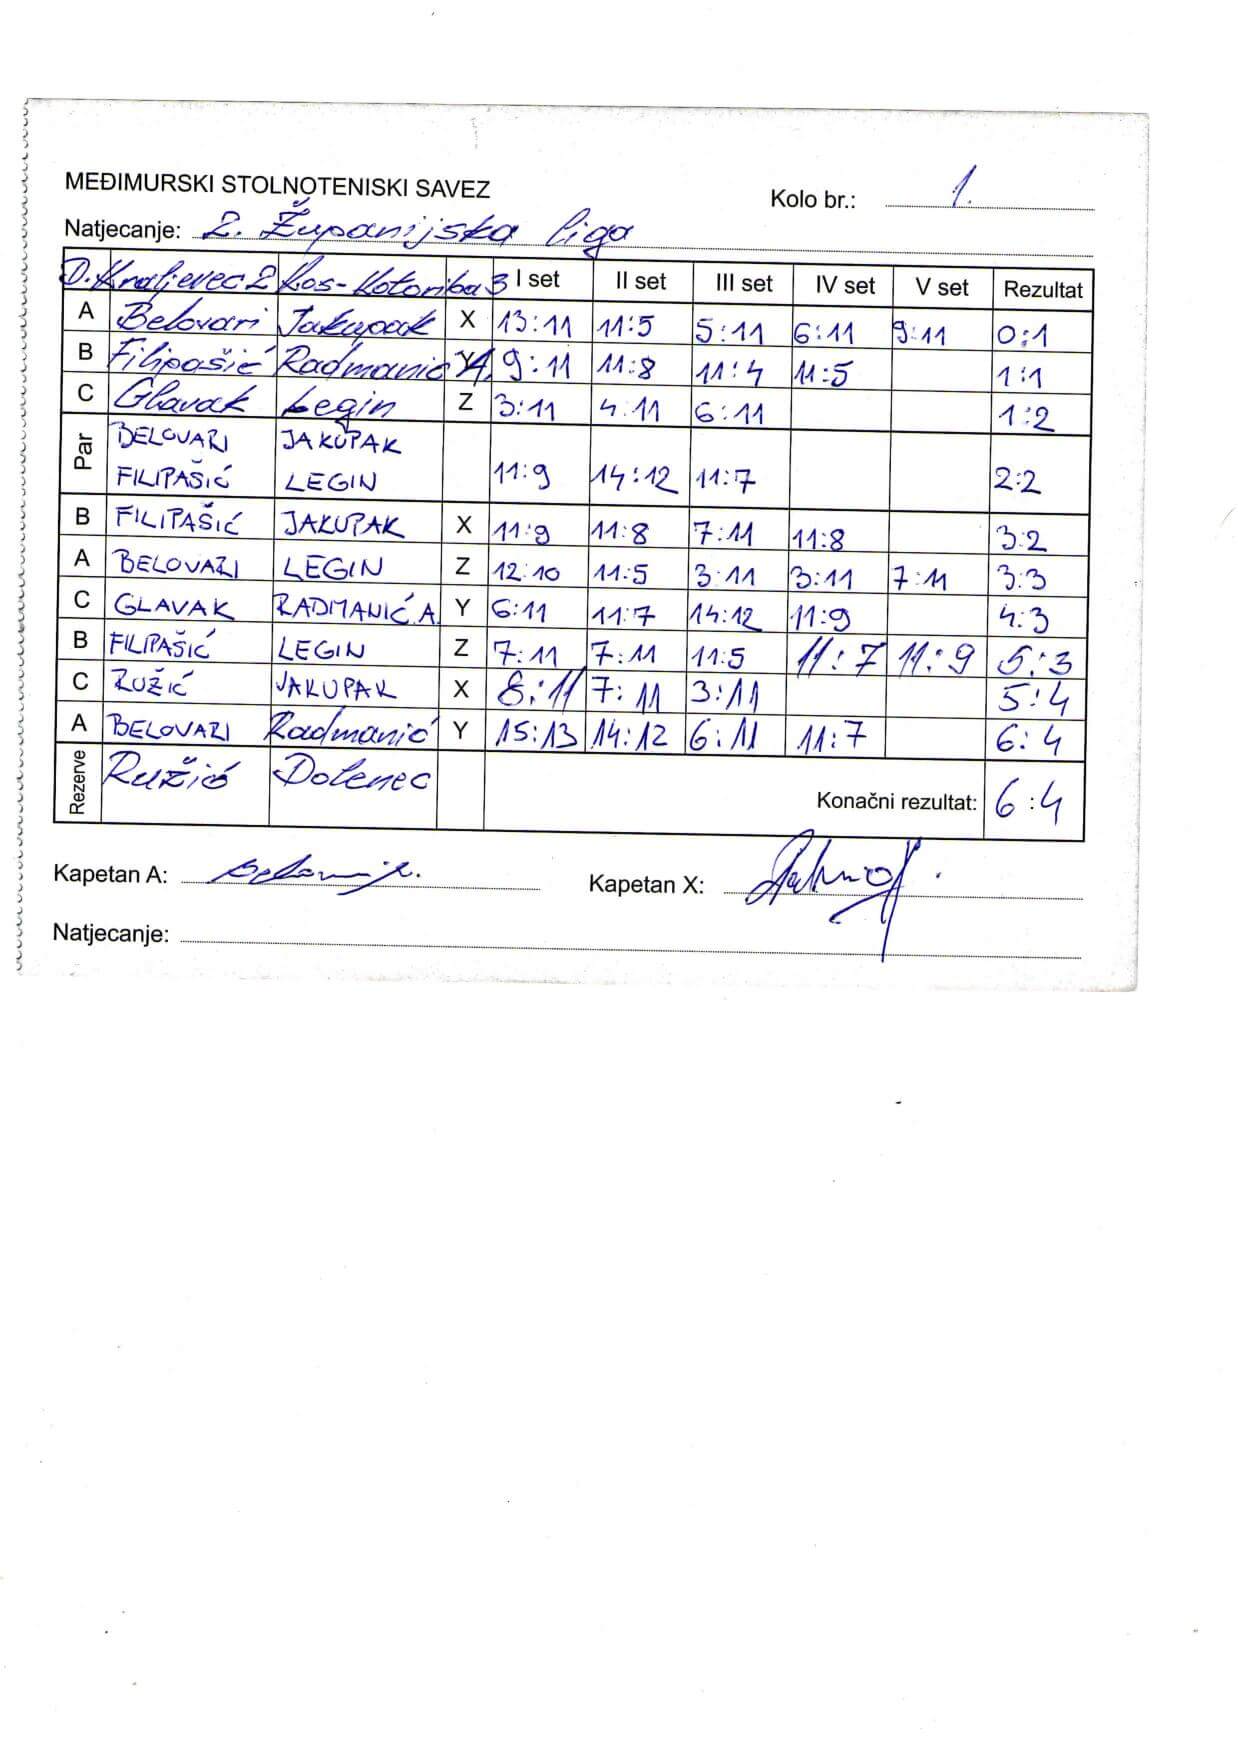 MEĐIMURSKI STOLNOTENISKI SAVEZ
Kolo br.: 1.
Natjecanje: 2. Županijska liga
D. Kraljevec 2 Ros-Kotoriba 3 I set II set III set IV set V set Rezultat
A Belovari Jakupak X 13:11 11:5 5:11 6:11 9:11 0:1
B Filipašić Radmanić A. Y 9:11 11:8 11:4 11:5 1:1
C Glavak Legin Z 3:11 4:11 6:11 1:2
Par BELOVARI JAKUPAK
FILIPAŠIĆ LEGIN 11:9 14:12 11:7 2:2
B FILIPAŠIĆ JAKUPAK X 11:9 11:8 7:11 11:8 3:2
A BELOVARI LEGIN Z 12:10 11:5 3:11 3:11 7:11 3:3
C GLAVAK RADMANIĆ.A. Y 6:11 11:7 14:12 11:9 4:3
B FILIPAŠIĆ LEGIN Z 7:11 7:11 11:5 11:7 11:9 5:3
C RUŽIĆ JAKUPAK X 8:11 7:11 3:11 5:4
A BELOVARI Radmanić Y 15:13 14:12 6:11 11:7 6:4
Rezerve Ružić Dolenec Konačni rezultat: 6:4
Kapetan A:
Kapetan X:
Natjecanje: